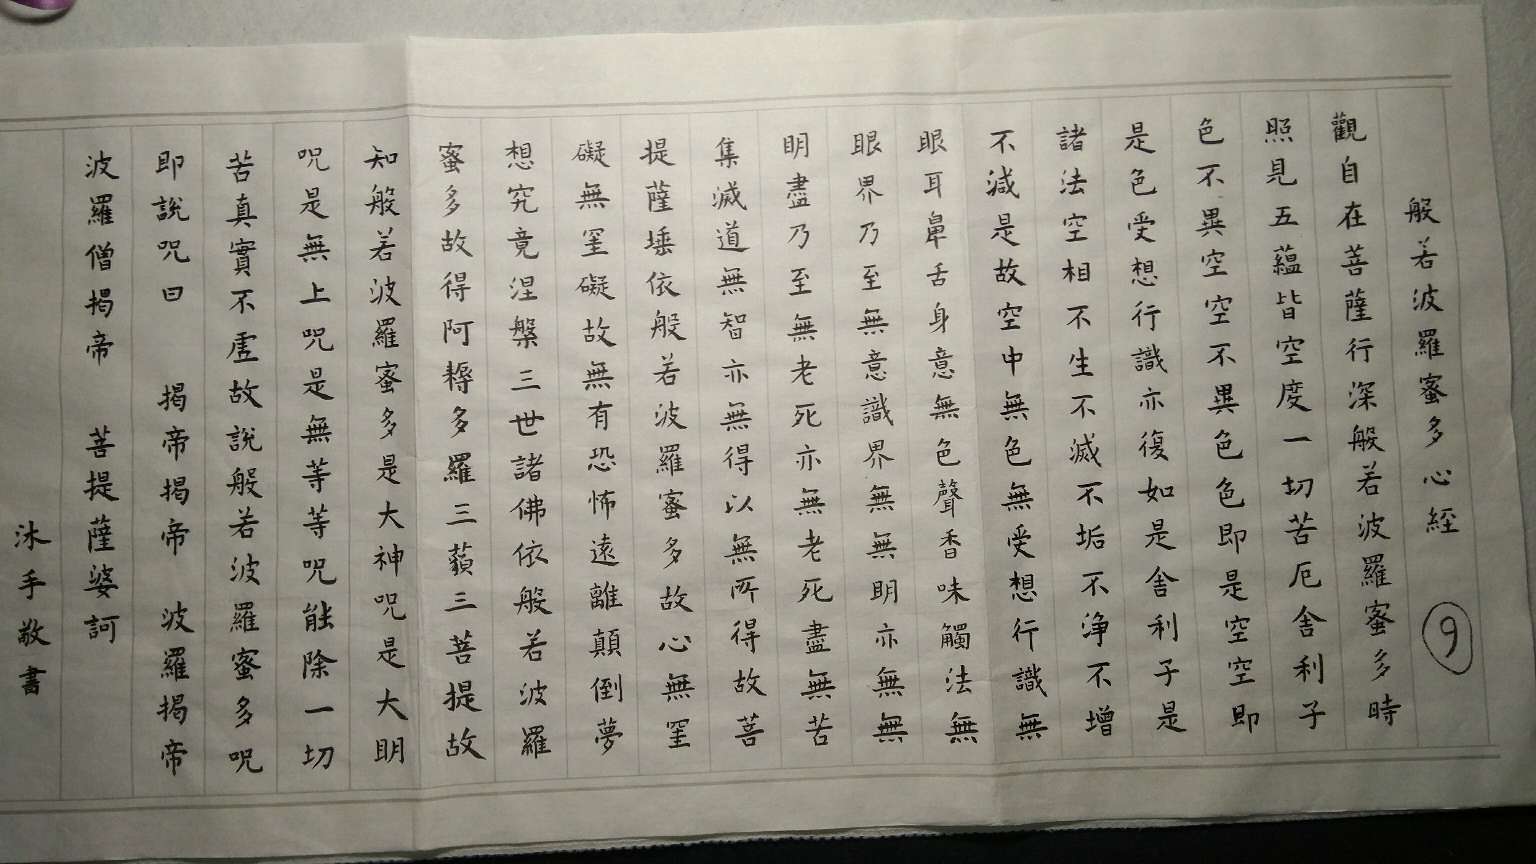 般若波羅蜜多心經 9
觀自在菩薩行深般若波羅蜜多時
照見五蘊皆空度一切苦厄舍利子
色不異空空不異色色即是空空即
是色受想行識亦復如是舍利子是
諸法空相不生不滅不垢不淨不增
不減是故空中無色無受想行識無
眼耳鼻舌身意無色聲香味觸法無
眼界乃至無意識界無無明亦無無
明盡乃至無老死亦無老死盡無苦
集滅道無智亦無得以無所得故菩
提薩埵依般若波羅蜜多故心無罣
礙無罣礙故無有恐怖遠離顛倒夢
想究竟涅槃三世諸佛依般若波羅
蜜多故得阿耨多羅三藐三菩提故
知般若波羅蜜多是大神咒是大明
咒是無上咒是無等等咒能除一切
苦真實不虛故說般若波羅蜜多咒
即說咒曰 揭帝揭帝 波羅揭帝
波羅僧揭帝 菩提薩婆訶
沐手敬書